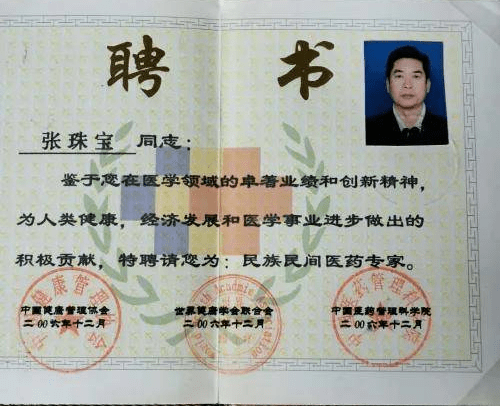 聘书
张珠宝 同志：
鉴于您在医学领域的卓著业绩和创新精神，
为人类健康，经济发展和医学事业进步做出的
积极贡献，特聘请您为：民族民间医药专家。
中国健康管理协会
二00六年十二月
世界健康学会联合会
二00六年十二月
中国医药管理科学院
二00六年十二月